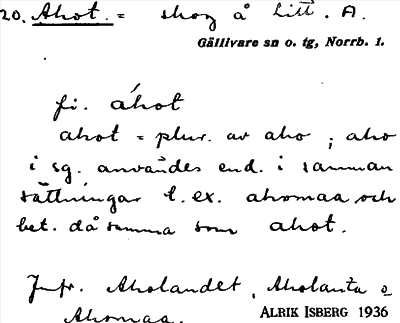 20. Ahot. = skog å Litt. A.
Gällivare sn o. tg, Norrb. l.
fi. áhot
ahot = plur. av aho ; aho
i sg. användes end. i samman
sättningar t. ex. ahomaa och
bet. då samma som ahot.
Jmfr. Aholandet, Aholanta o
Ahomaa.
ALRIK ISBERG 1936